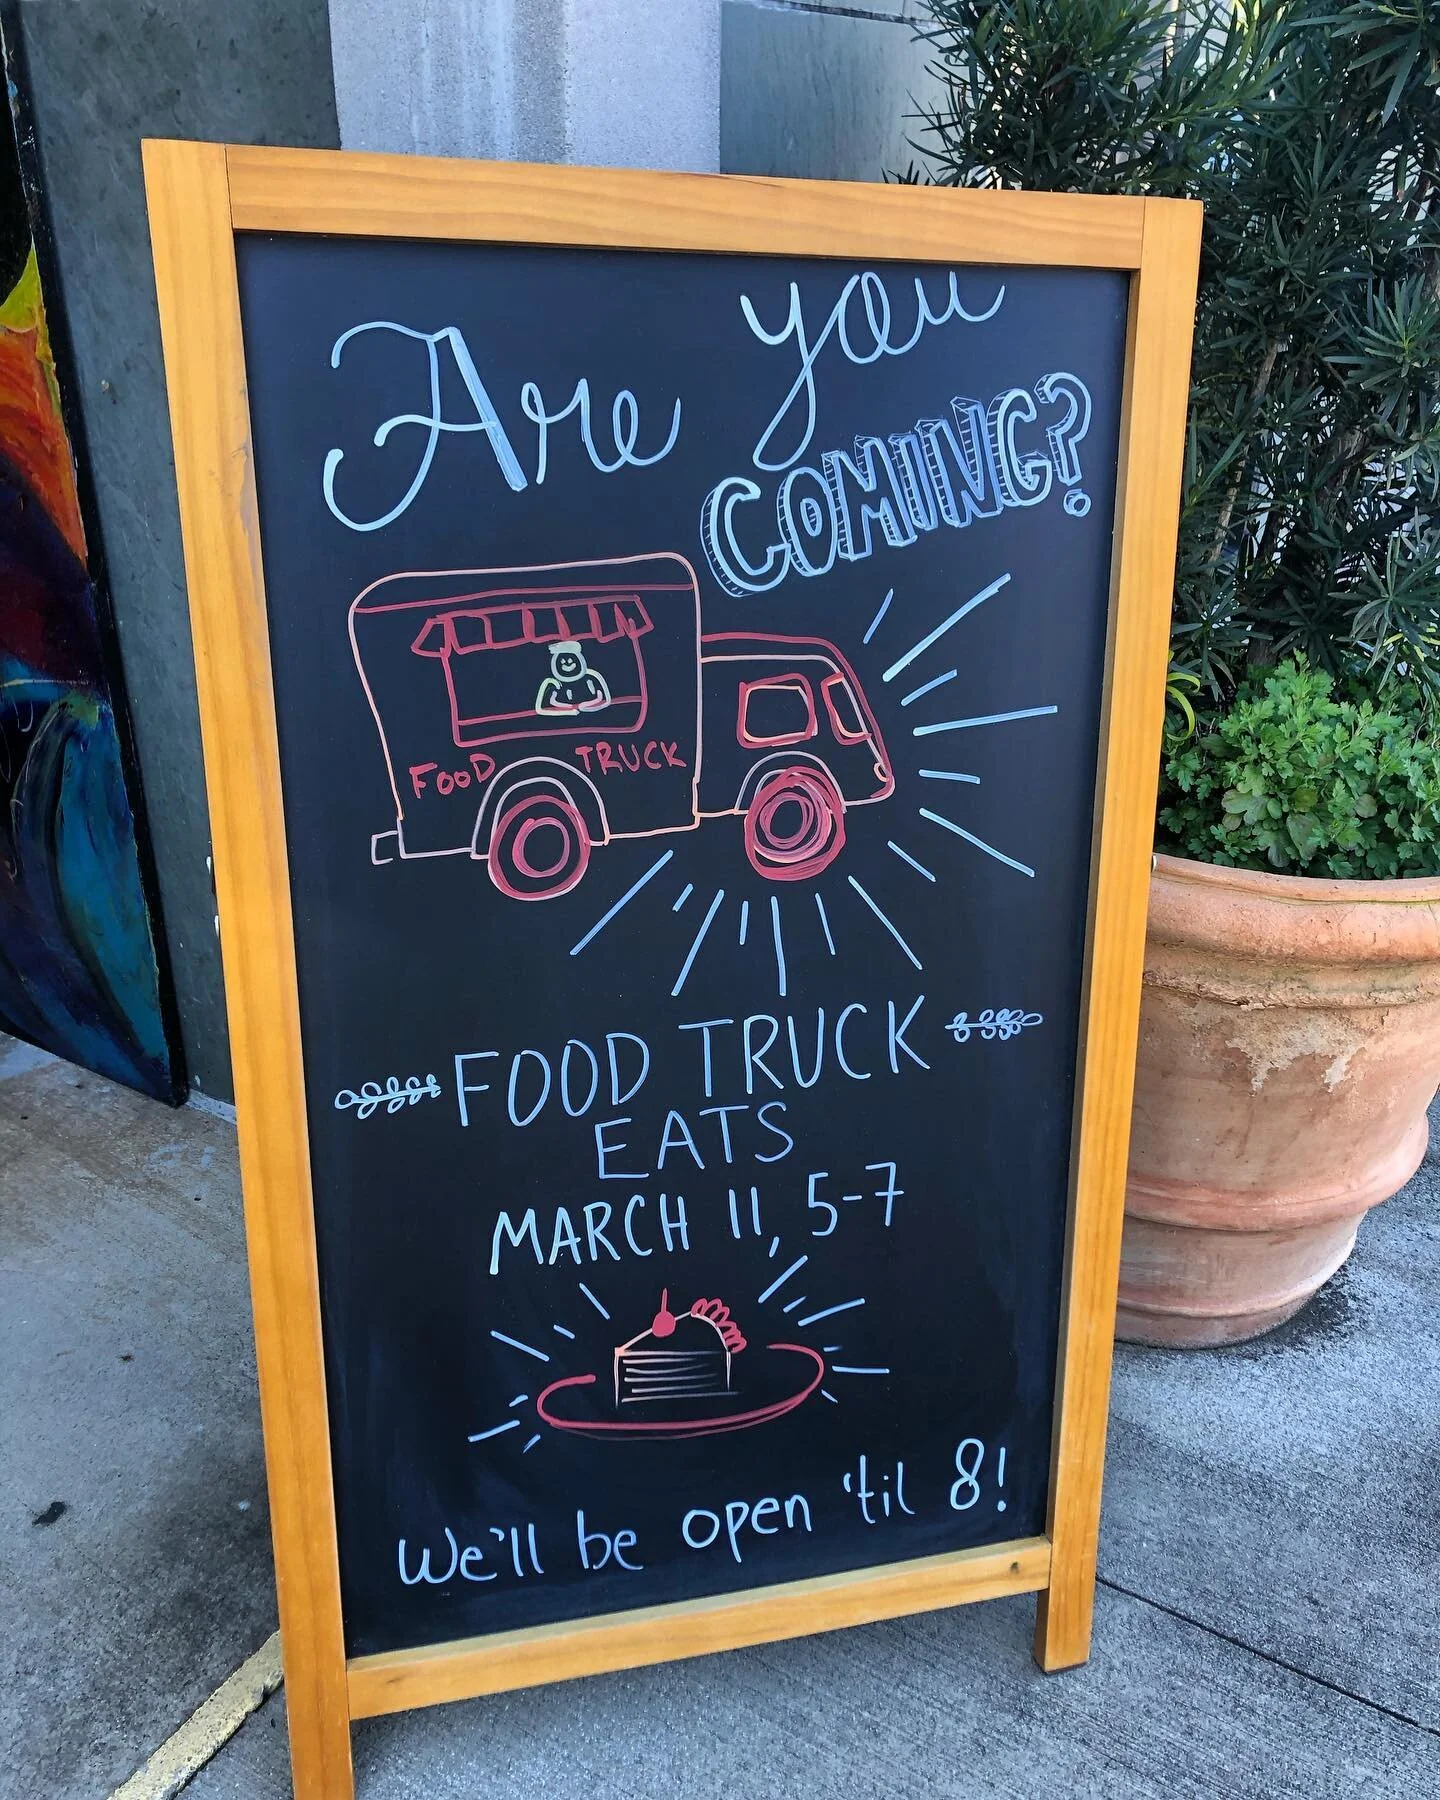 Are you
COMING?
FOOD TRUCK
FOOD TRUCK
EATS
MARCH 11, 5-7
We'll be open 'til 8!